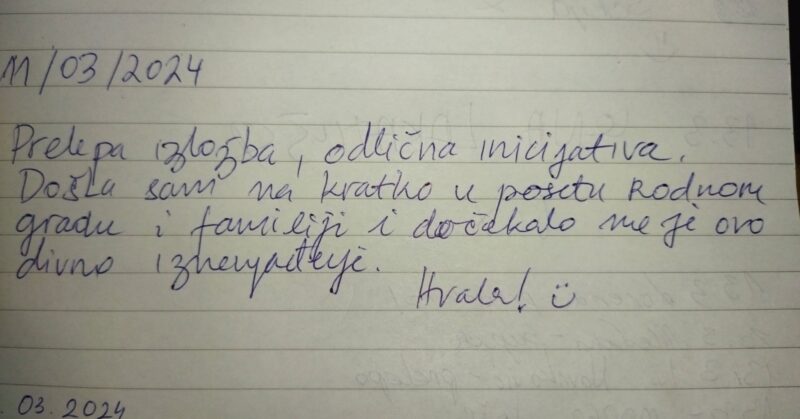 11/03/2024
Prelepa izložba, odlična inicijativa.
Došla sam na kratko u posetu rodnom
gradu i familiji i dočekalo me je ovo
divno iznenađenje.
Hvala! :)
. 03. 2024